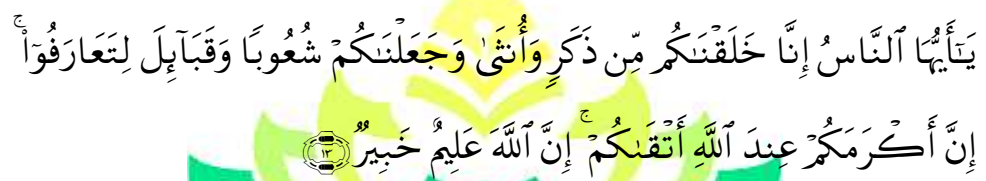 يَـٰٓأَيُّهَا ٱلنَّاسُ إِنَّا خَلَقۡنَـٰكُم مِّن ذَكَرٖ وَأُنثَىٰ وَجَعَلۡنَـٰكُمۡ شُعُوبٗا وَقَبَآئِلَ لِتَعَارَفُوٓاْۚ
إِنَّ أَكۡرَمَكُمۡ عِندَ ٱللَّهِ أَتۡقَىٰكُمۡۚ إِنَّ ٱللَّهَ عَلِيمٌ خَبِيرٞ ١٣